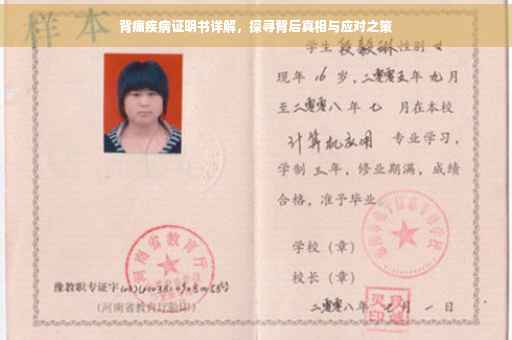 背痛疾病证明书详解，探寻背后真相与应对之策
样本
河南省教育厅
豫教职专证字
(河南省教育厅验印)
学生 段毅琳 性别 女
现年 16 岁，二零零五年 九 月
至二零零八年 七 月在本校
计算机应用 专业学习，
学制 三 年，修业期满，成绩
合格，准予毕业
学校（章）
校长（章）
二零零八年 月 一 日